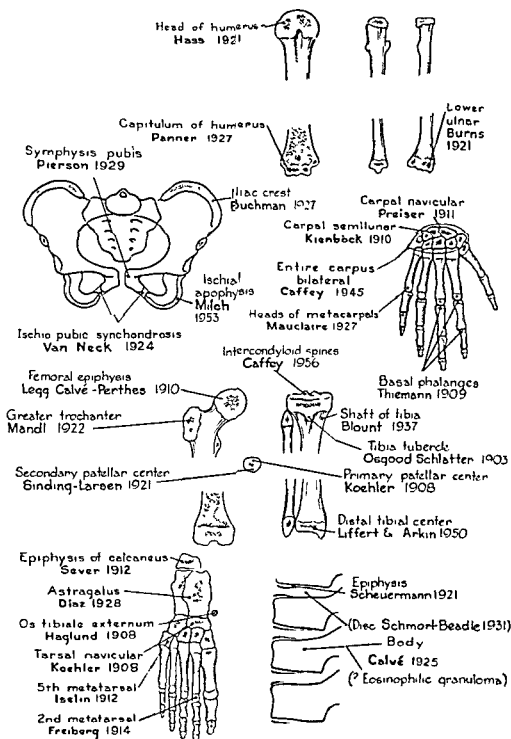 Head of humerus
Hass 1921
Capitulum of humerus
Panner 1927
Lower
ulnar
Burns
1921
Symphysis pubis
Pierson 1929
Iliac crest
Buchman 1927
Carpal navicular
Preiser 1911
Carpal semilunar
Kienböck 1910
Entire carpus
bilateral
Caffey 1945
Ischial
apophysis
Milch
1953
Heads of metacarpals
Mauclaire 1927
Ischio pubic synchondrosis
Van Neck 1924
Basal phalanges
Thiemann 1909
Intercondyloid spines
Caffey 1956
Femoral epiphysis
Legg Calvé-Perthes 1910
Greater trochanter
Mandl 1922
Shaft of tibia
Blount 1937
Tibia tubercle
Osgood Schlatter 1903
Secondary patellar center
Sinding-Larsen 1921
Primary patellar center
Koehler 1908
Distal tibial center
Liffert & Arkin 1950
Epiphysis of calcaneus
Sever 1912
Astragalus
Diaz 1928
Os tibiale externum
Haglund 1908
Tarsal navicular
Koehler 1908
5th metatarsal
Iselin 1912
2nd metatarsal
Freiberg 1914
Epiphysis
Scheuermann 1921
(Disc Schmorl-Beadle 1931)
Body
Calvé 1925
(? Eosinophilic granuloma)